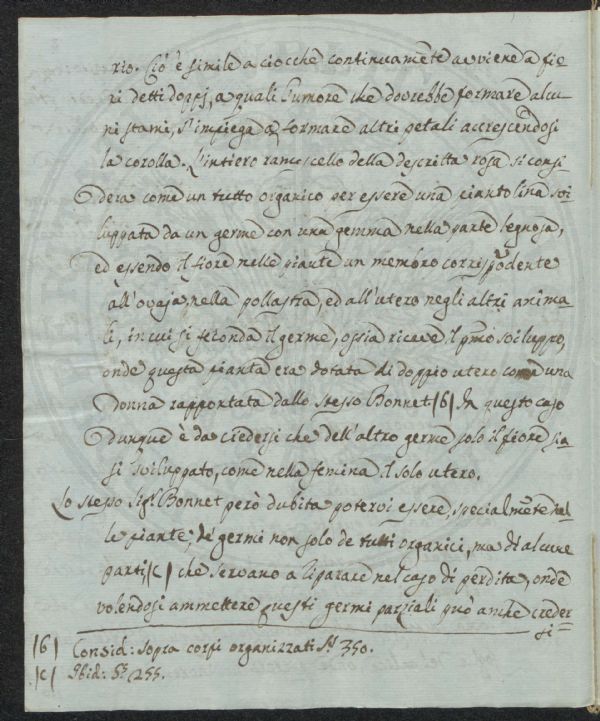 rio. Ciò è simile a ciocchè continuamẽte avviene a fio-
ri detti doppj, a quali l'umore che dovrebbe formare alcu-
ni stami, s'impiega a formare altri petali accrescendosi
la corolla. L'intiero ramoscello della descritta rosa si consi-
dera come un tutto organico per essere una piantolina svi-
luppata da un germe con una gemma nella parte legnosa,
ed essendo il fiore nelle piante un membro corrispõdente
all'ovaja nella pollastra, ed all'utero negli altri anima-
li, in cui si feconda il germe, ossia riceve il pmo sviluppo,
onde questa pianta era dotata di doppio utero come una
donna rapportata dallo stesso Bonnet (b) In questo caso
dunque è da credersi che dell'altro germe solo il fiore sia-
si sviluppato, come nella femina il solo utero.
Lo stesso Sigr Bonnet però dubita potervi essere, specialmẽte nel-
le piante, de' germi non solo de tutti organici, ma di alcune
parti (c) che servano a riparare nel caso di perdita, onde
volendosi ammettere questi germi parziali può anche creder-
si
(b) Consid: sopra corpi organizzati §. 350.
(c) Ibid: §. 255.